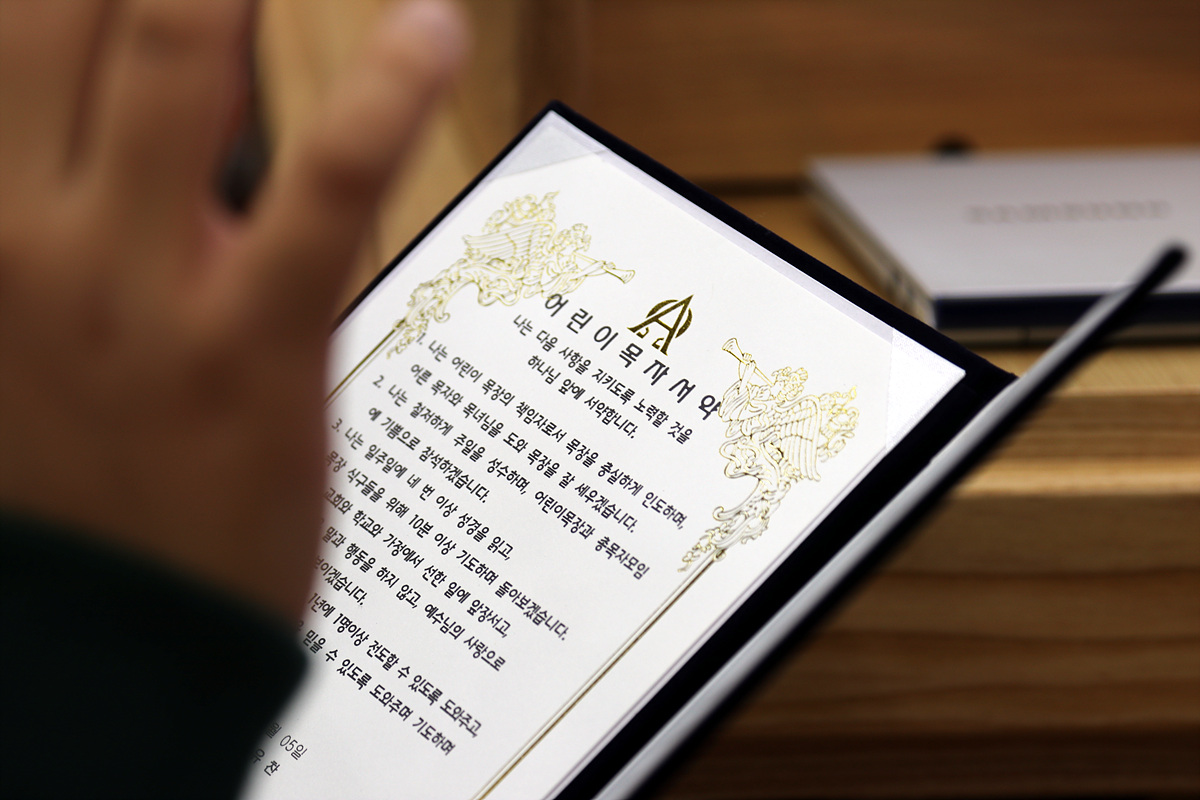 어린이목자서약
나는 다음 사항을 지키도록 노력할 것을
하나님 앞에 서약합니다.
1. 나는 어린이 목장의 책임자로서 목장을 충실하게 인도하며,
어른 목자와 목녀님을 도와 목장을 잘 세우겠습니다.
2. 나는 철저하게 주일을 성수하며, 어린이목장과 총목자모임
에 기쁨으로 참석하겠습니다.
3. 나는 일주일에 네 번 이상 성경을 읽고,
목장 식구들을 위해 10분 이상 기도하며 돌아보겠습니다.
교회와 학교와 가정에서 선한 일에 앞장서고,
말과 행동을 하지 않고, 예수님의 사랑으로
보이겠습니다.
1년에 1명이상 전도할 수 있도록 도와주고,
믿을 수 있도록 도와주며 기도하며
월 05일
우 찬